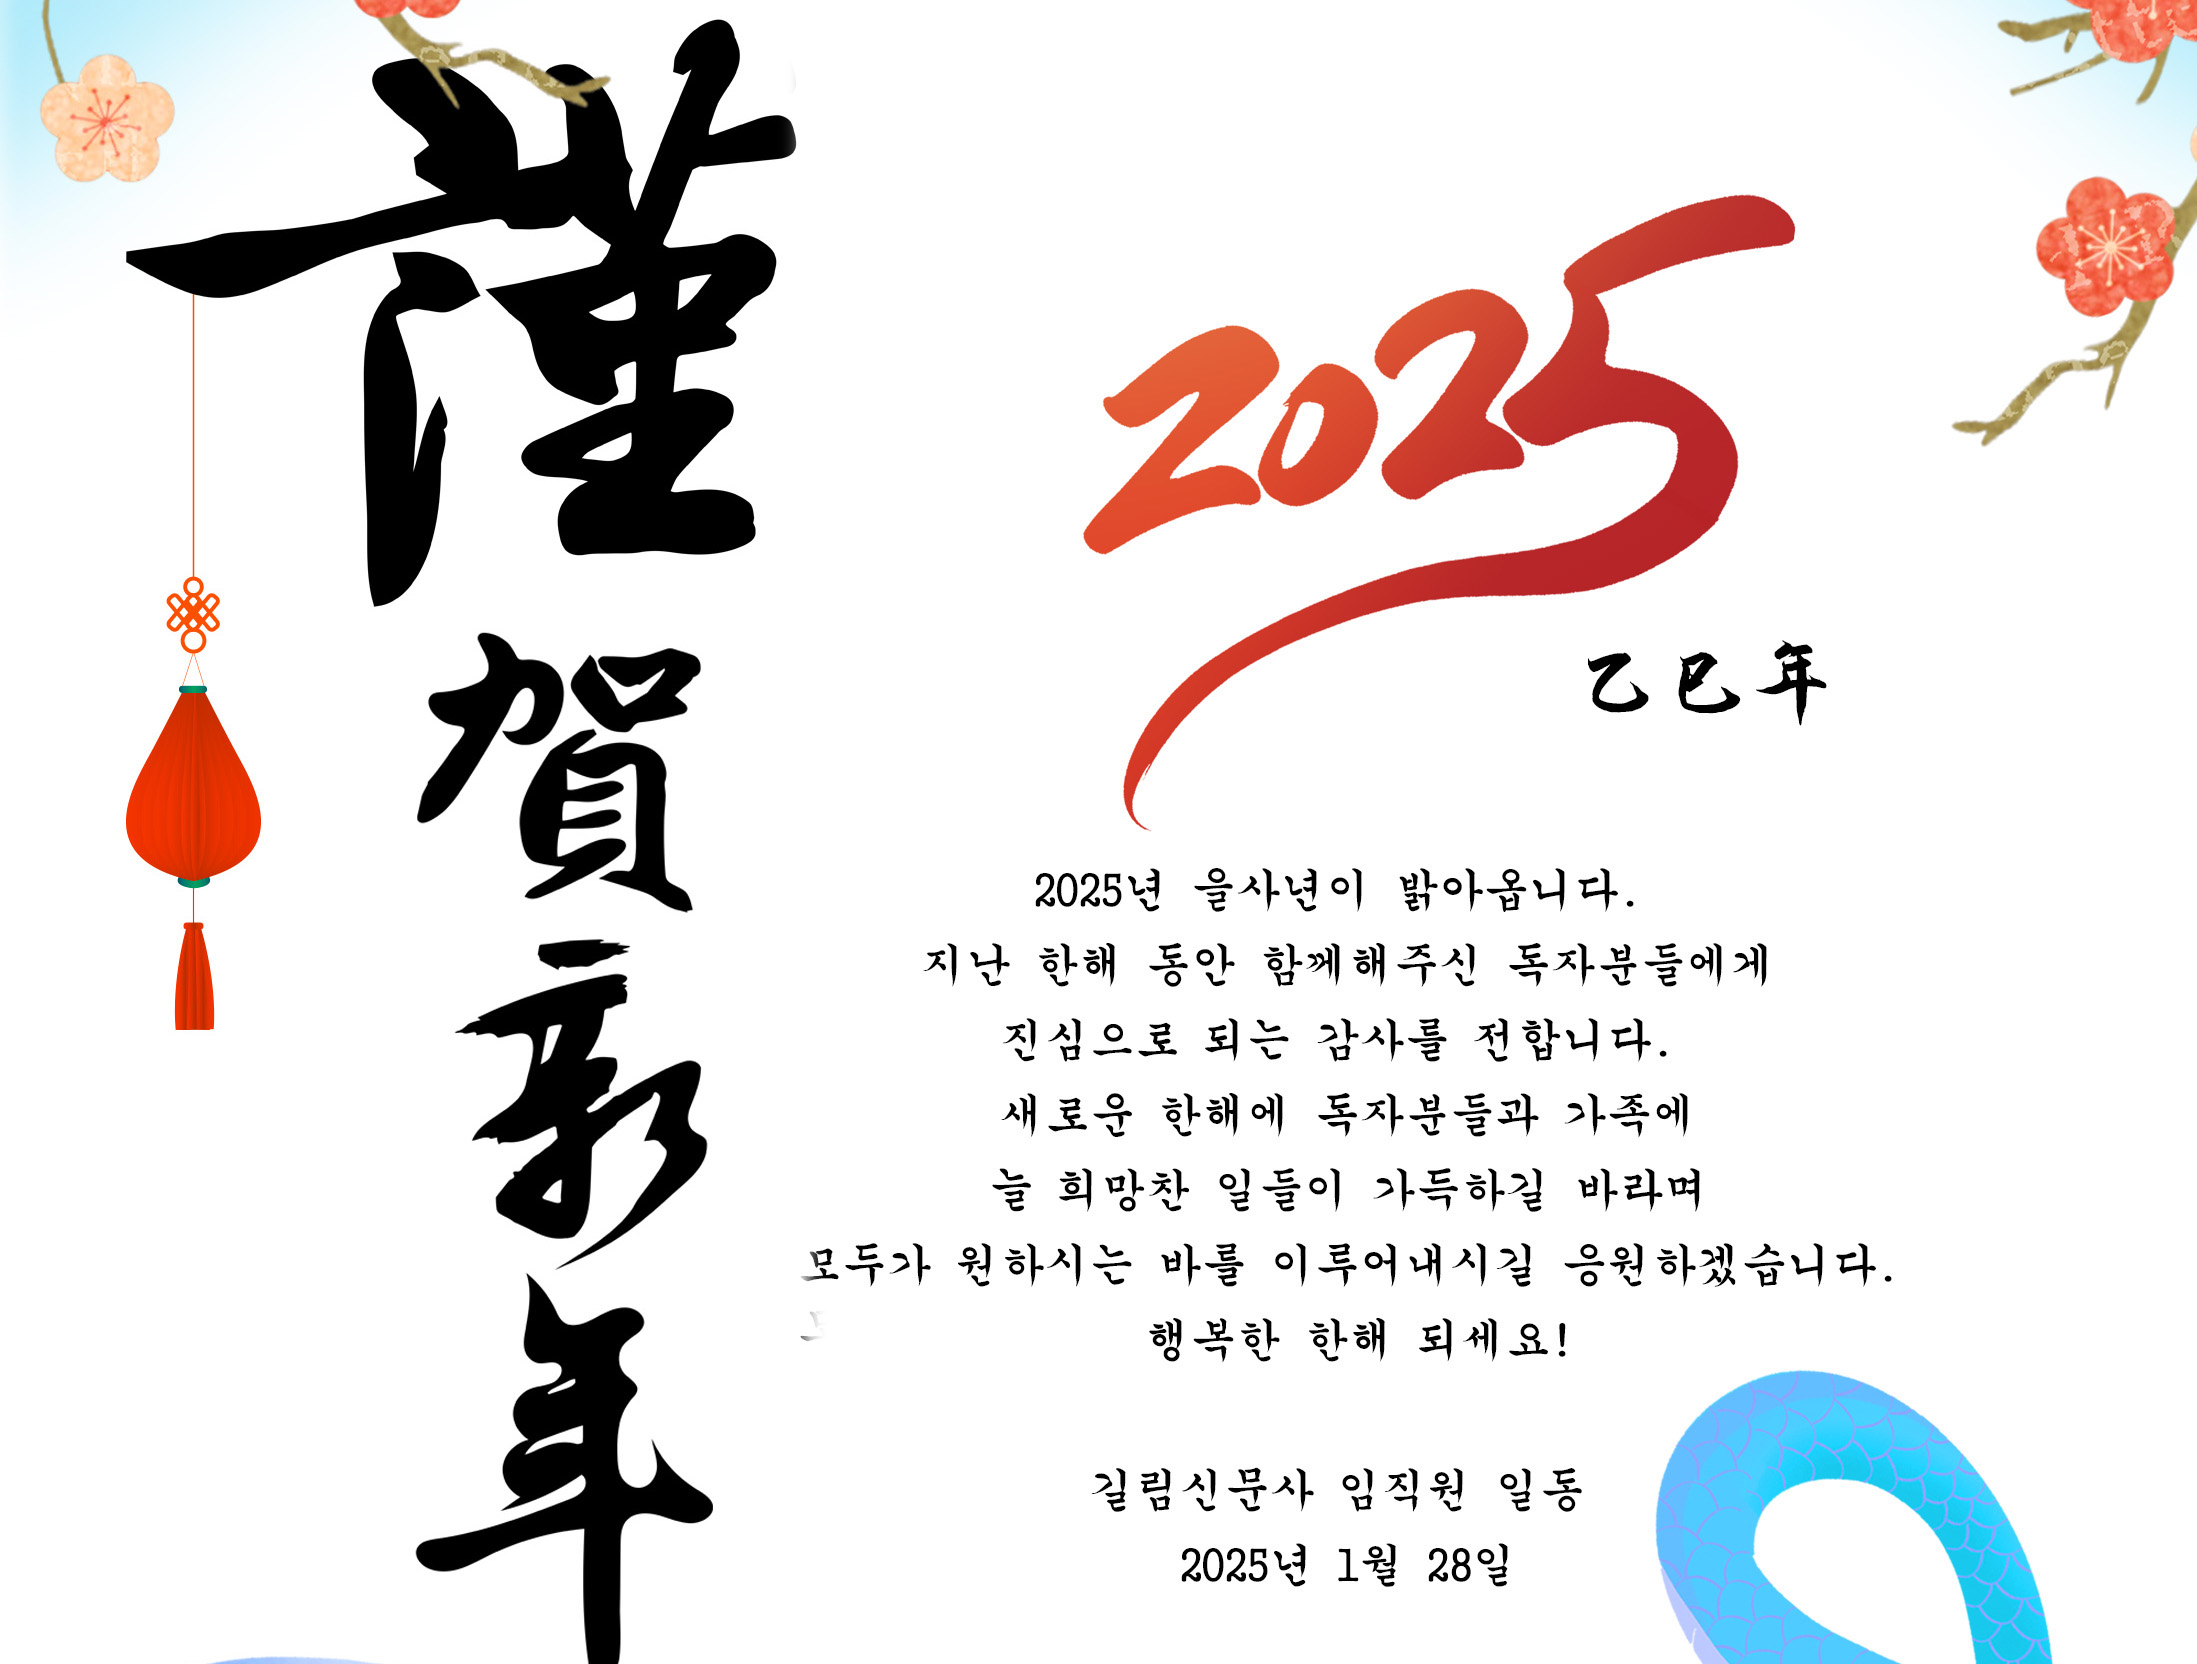 謹賀新年
2025
乙巳年
2025년 을사년이 밝아옵니다.
지난 한해 동안 함께해주신 독자분들에게
진심으로 되는 감사를 전합니다.
새로운 한해에 독자분들과 가족에
늘 희망찬 일들이 가득하길 바라며
모두가 원하시는 바를 이루어내시길 응원하겠습니다.
행복한 한해 되세요!
길림신문사 임직원 일동
2025년 1월 28일